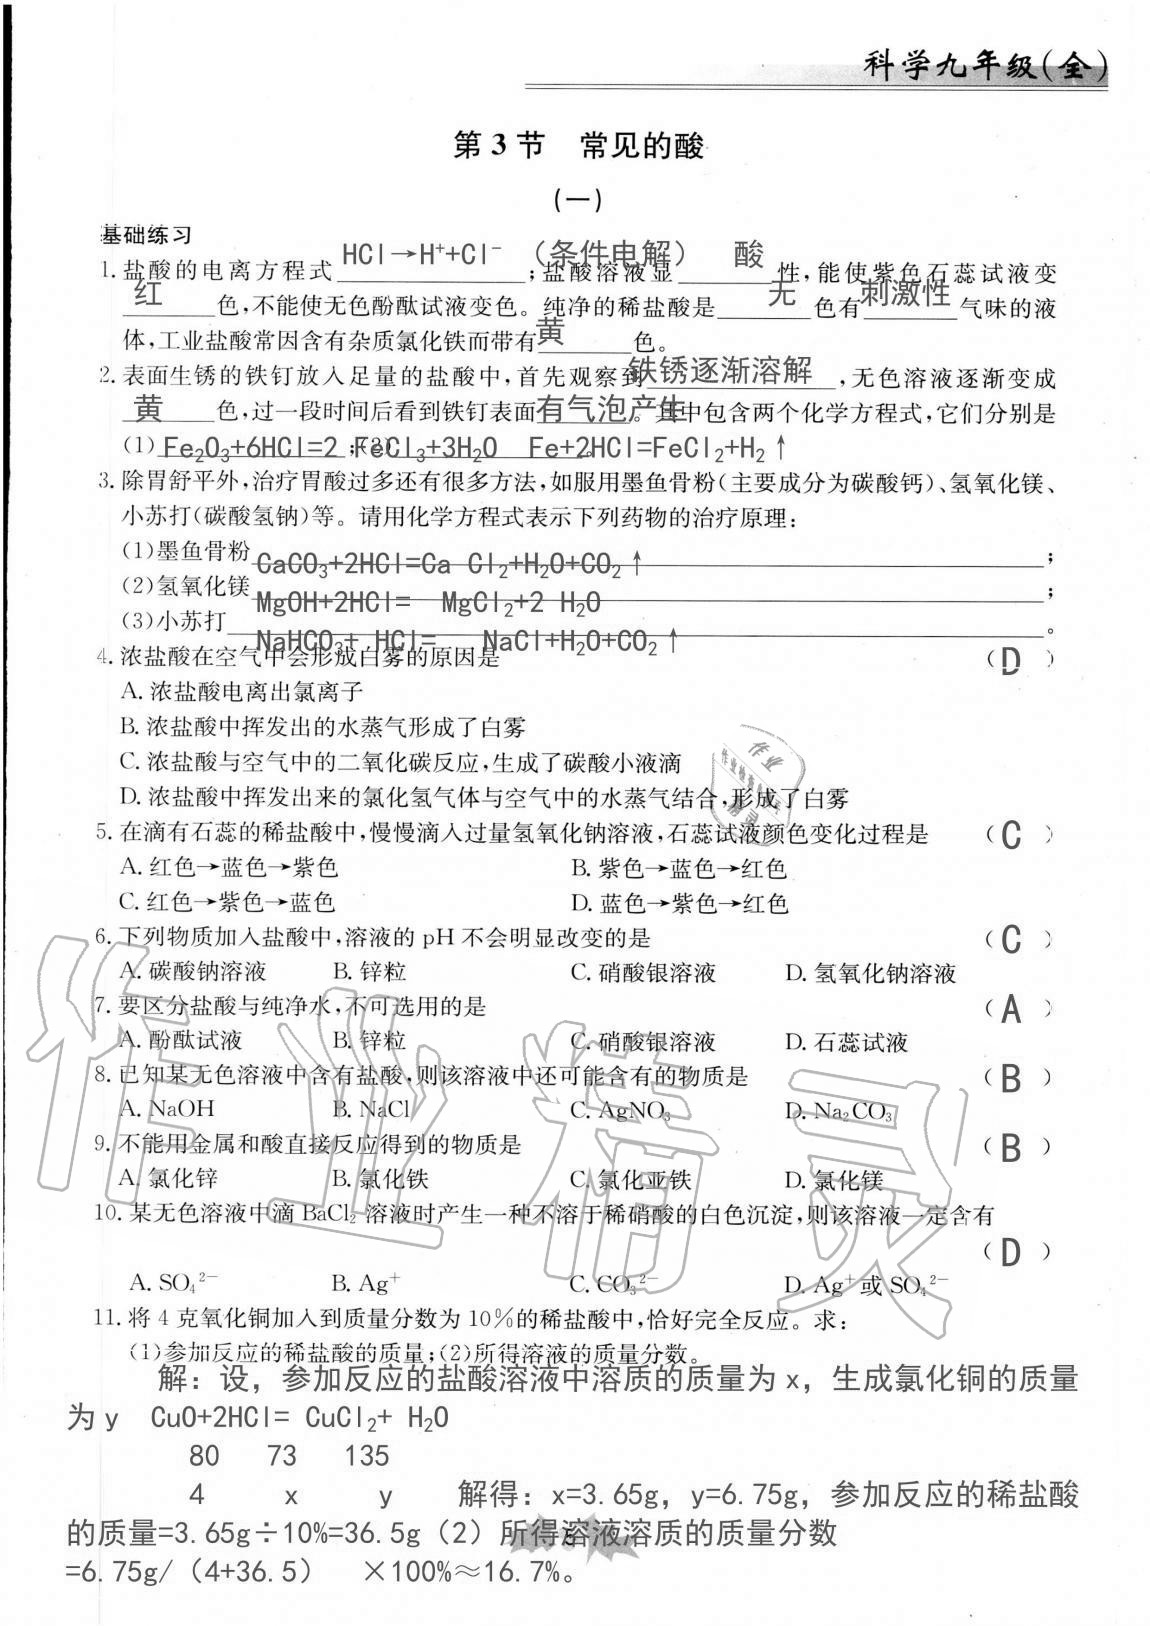 科学九年级(全)
第3节 常见的酸
(一)
基础练习
HCl→H⁺+Cl⁻ (条件电解) 酸
1. 盐酸的电离方程式____;盐酸溶液显____性,能使紫色石蕊试液变
红 无 刺激性
____色,不能使无色酚酞试液变色。纯净的稀盐酸是____色有____气味的液
黄
体,工业盐酸常因含有杂质氯化铁而带有____色。
铁锈逐渐溶解
2. 表面生锈的铁钉放入足量的盐酸中,首先观察到____,无色溶液逐渐变成
黄 有气泡产生
____色,过一段时间后看到铁钉表面____。其中包含两个化学方程式,它们分别是
(1)____;(2)____。
Fe₂O₃+6HCl=2 FeCl₃+3H₂O Fe+2HCl=FeCl₂+H₂↑
3. 除胃舒平外,治疗胃酸过多还有很多方法,如服用墨鱼骨粉(主要成分为碳酸钙)、氢氧化镁、
小苏打(碳酸氢钠)等。请用化学方程式表示下列药物的治疗原理:
(1)墨鱼骨粉____;
CaCO₃+2HCl=Ca Cl₂+H₂O+CO₂↑
(2)氢氧化镁____;
MgOH+2HCl= MgCl₂+2 H₂O
(3)小苏打____。
NaHCO₃+ HCl= NaCl+H₂O+CO₂↑
4. 浓盐酸在空气中会形成白雾的原因是 ( D )
A. 浓盐酸电离出氯离子
B. 浓盐酸中挥发出的水蒸气形成了白雾
C. 浓盐酸与空气中的二氧化碳反应,生成了碳酸小液滴
D. 浓盐酸中挥发出来的氯化氢气体与空气中的水蒸气结合,形成了白雾
5. 在滴有石蕊的稀盐酸中,慢慢滴入过量氢氧化钠溶液,石蕊试液颜色变化过程是 ( C )
A. 红色→蓝色→紫色 B. 紫色→蓝色→红色
C. 红色→紫色→蓝色 D. 蓝色→紫色→红色
6. 下列物质加入盐酸中,溶液的 pH 不会明显改变的是 ( C )
A. 碳酸钠溶液 B. 锌粒 C. 硝酸银溶液 D. 氢氧化钠溶液
7. 要区分盐酸与纯净水,不可选用的是 ( A )
A. 酚酞试液 B. 锌粒 C. 硝酸银溶液 D. 石蕊试液
8. 已知某无色溶液中含有盐酸,则该溶液中还可能含有的物质是 ( B )
A. NaOH B. NaCl C. AgNO₃ D. Na₂CO₃
9. 不能用金属和酸直接反应得到的物质是 ( B )
A. 氯化锌 B. 氯化铁 C. 氯化亚铁 D. 氯化镁
10. 某无色溶液中滴 BaCl₂ 溶液时产生一种不溶于稀硝酸的白色沉淀,则该溶液一定含有
( D )
A. SO₄²⁻ B. Ag⁺ C. CO₃²⁻ D. Ag⁺或 SO₄²⁻
11. 将 4 克氧化铜加入到质量分数为 10%的稀盐酸中,恰好完全反应。求:
(1)参加反应的稀盐酸的质量;(2)所得溶液的质量分数。
解:设,参加反应的盐酸溶液中溶质的质量为 x,生成氯化铜的质量
为 y CuO+2HCl= CuCl₂+ H₂O
80 73 135
4 x y 解得:x=3.65g,y=6.75g,参加反应的稀盐酸
的质量=3.65g÷10%=36.5g(2)所得溶液溶质的质量分数
=6.75g/(4+36.5) ×100%≈16.7%。
5
作业精灵